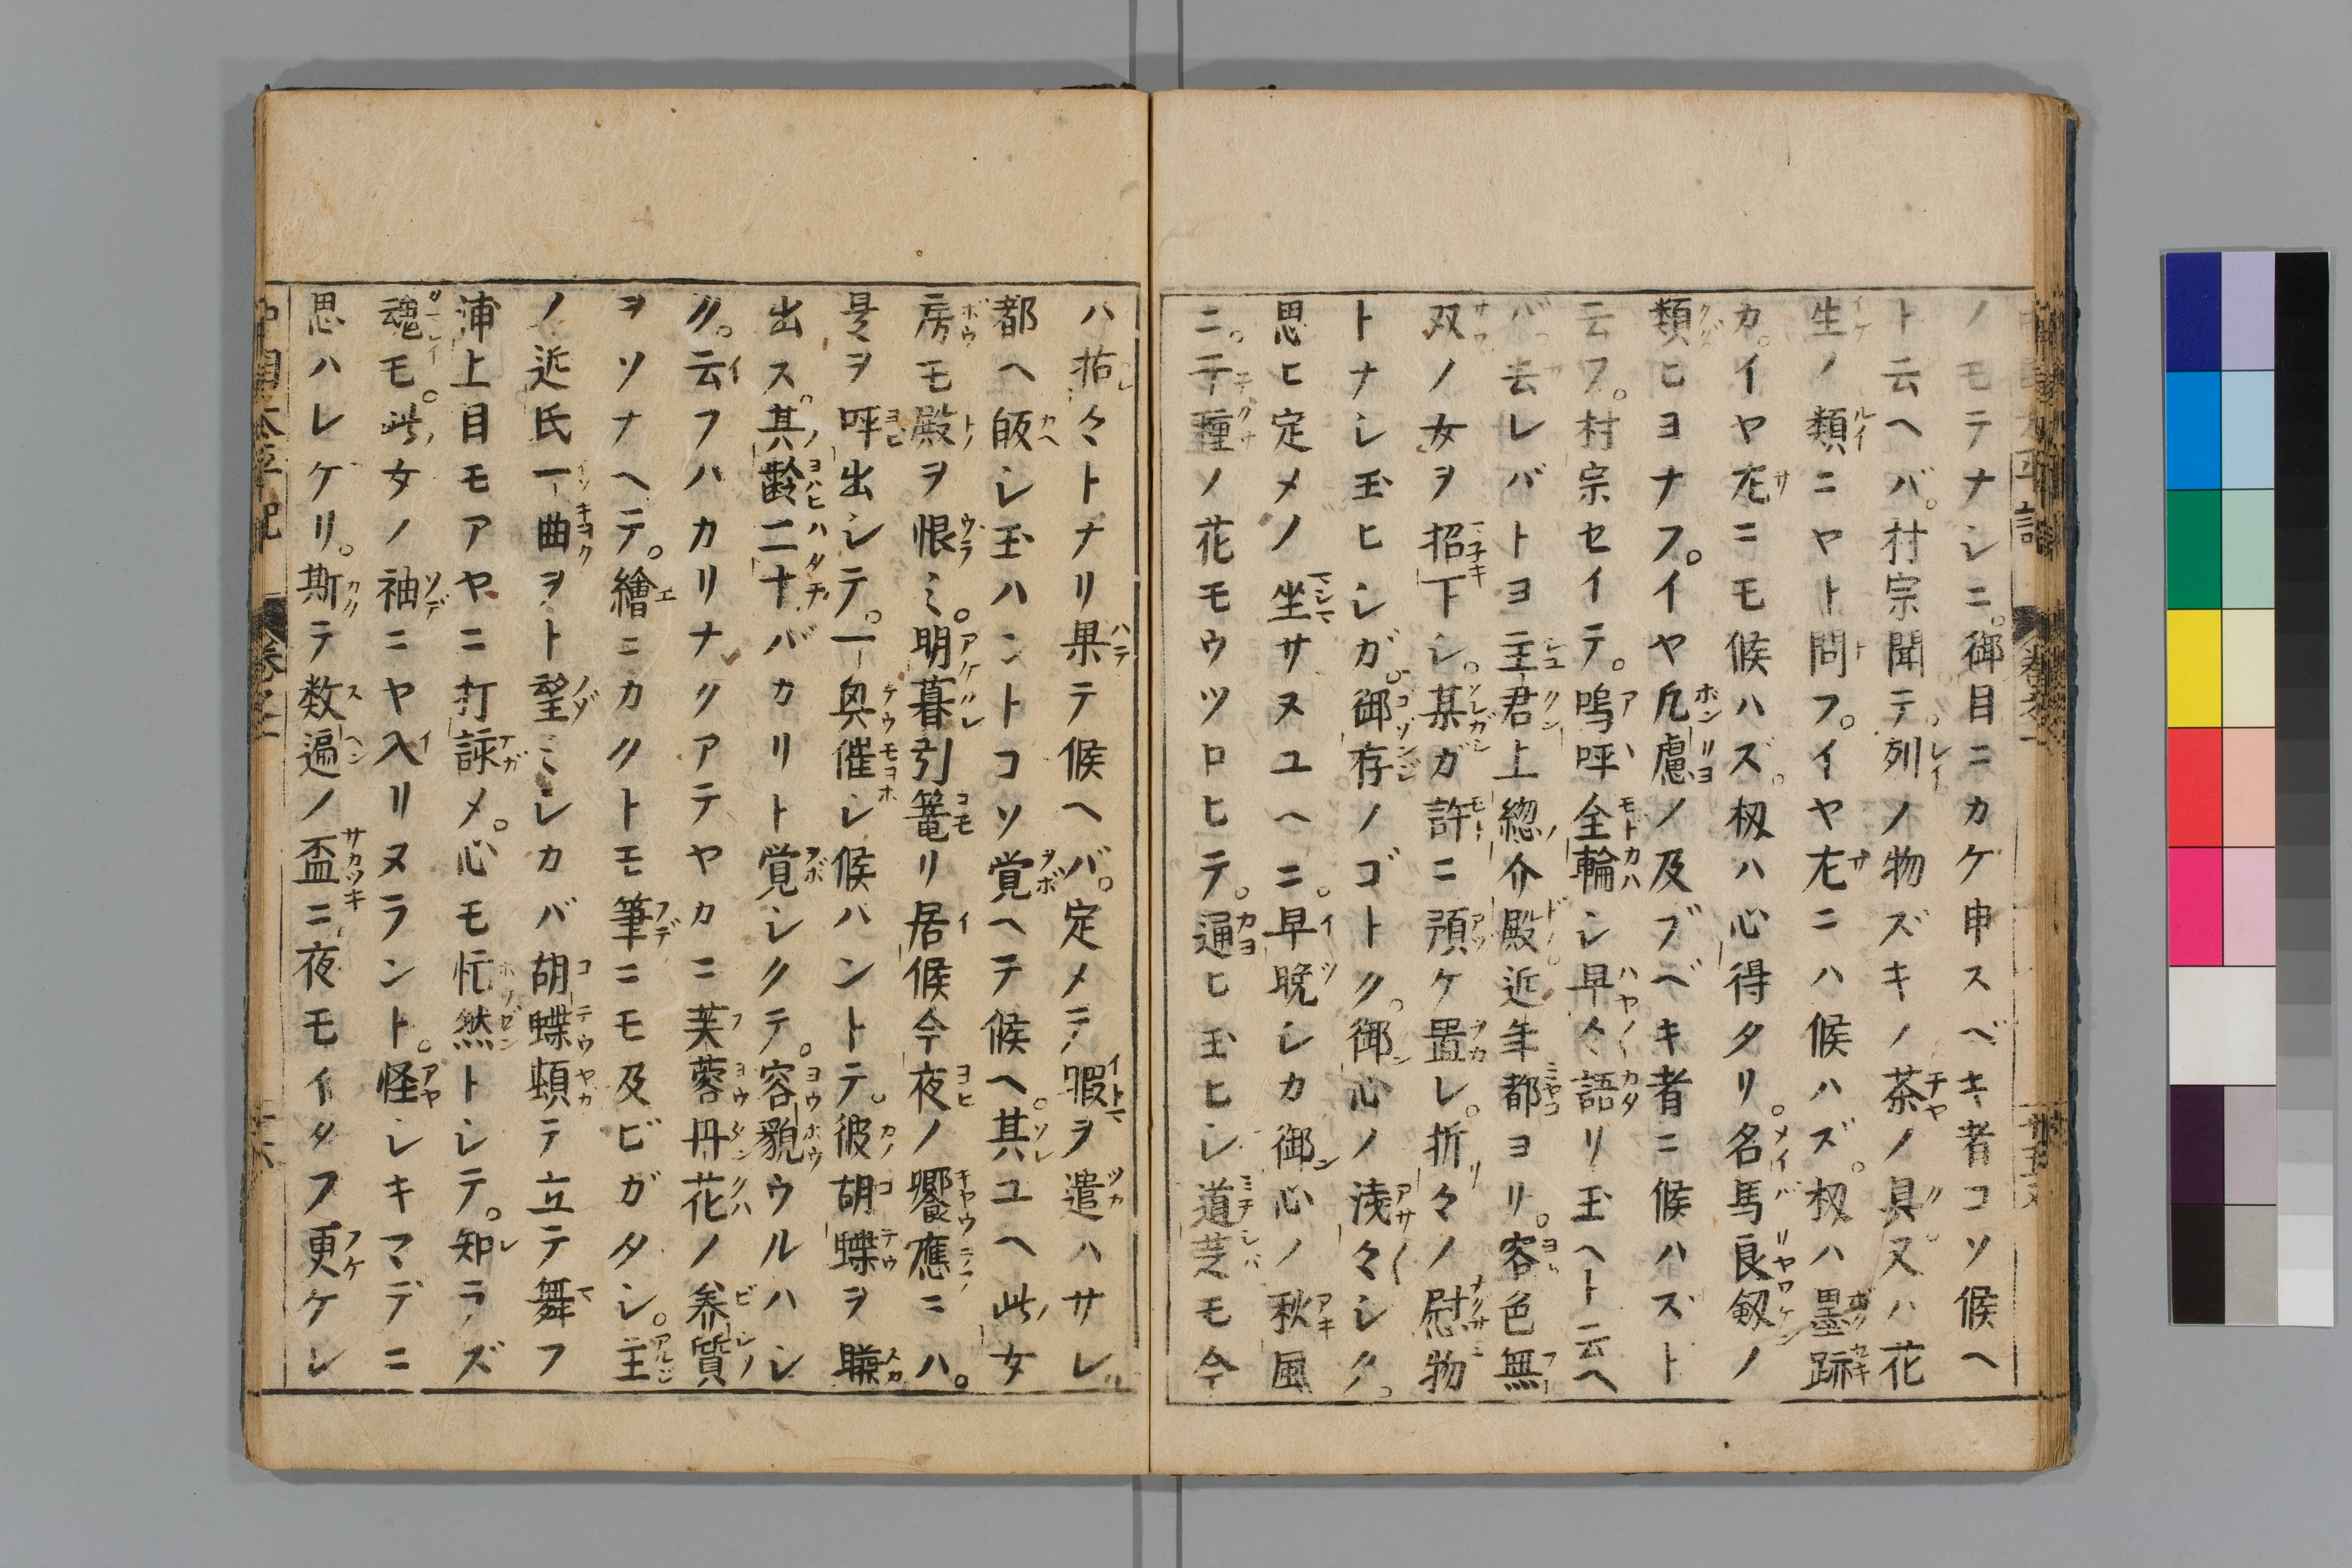 ノモテナシニ。御目ニカケ申スベキ者コソ候ヘ
ト云ヘバ。村宗聞テ。列ノ物ズキノ茶ノ具。又ハ花
生ノ類ニヤト問フ。イヤ左ニハ候ハズ。扨ハ墨跡
カ。イヤ左ニモ候ハズ。扨ハ心得タリ。名馬良劔ノ
類ヒヨナフ。イヤ凡慮ノ及ブベキ者ニ候ハズト
云フ。村宗セイテ。嗚呼全輪シ早々語リ玉ヘト云ヘ
バ去レバトヨ主君上総介殿近年都ヨリ。容色無
双ノ女ヲ招下シ。某ガ許ニ預ケ置レ。折々ノ慰物
トナシ玉ヒシガ。御存ノゴトク。御心ノ淺々シク。
思ヒ定メノ坐サヌユヘニ。早晩シカ御心ノ秋風
ニ。千種ノ花モウツロヒテ。通ヒ玉ヒシ道芝モ今
ハ拈々トナリ果テ候ヘバ。定メテ暇ヲ遣ハサレ
都ヘ皈シ玉ハントコソ覚ヘテ候ヘ。其ユヘ此女
房モ殿ヲ恨ミ。明暮引篭リ居候今夜ノ饗應ニハ。
是ヲ呼出シテ。一奥催シ候ハントテ。彼胡蝶ヲ賺
出ス。其齢二十バカリト覚シクテ。容貌ウルハシ
ク。云フハカリナクアテヤカニ芙蓉丹花ノ養質
ヲソナヘテ。繪ニカクトモ筆ニモ及ビガタシ。主
ノ近氏一曲ヲト望ミシカバ胡蝶頓テ立テ舞フ
浦上目モアヤニ打詠メ。心モ忙然トシテ。知ラズ
魂モ。此女ノ袖ニヤ入リヌラント。怪シキマデニ
思ハレケリ。斯テ数遍ノ盃ニ夜モイタフ更ケシ